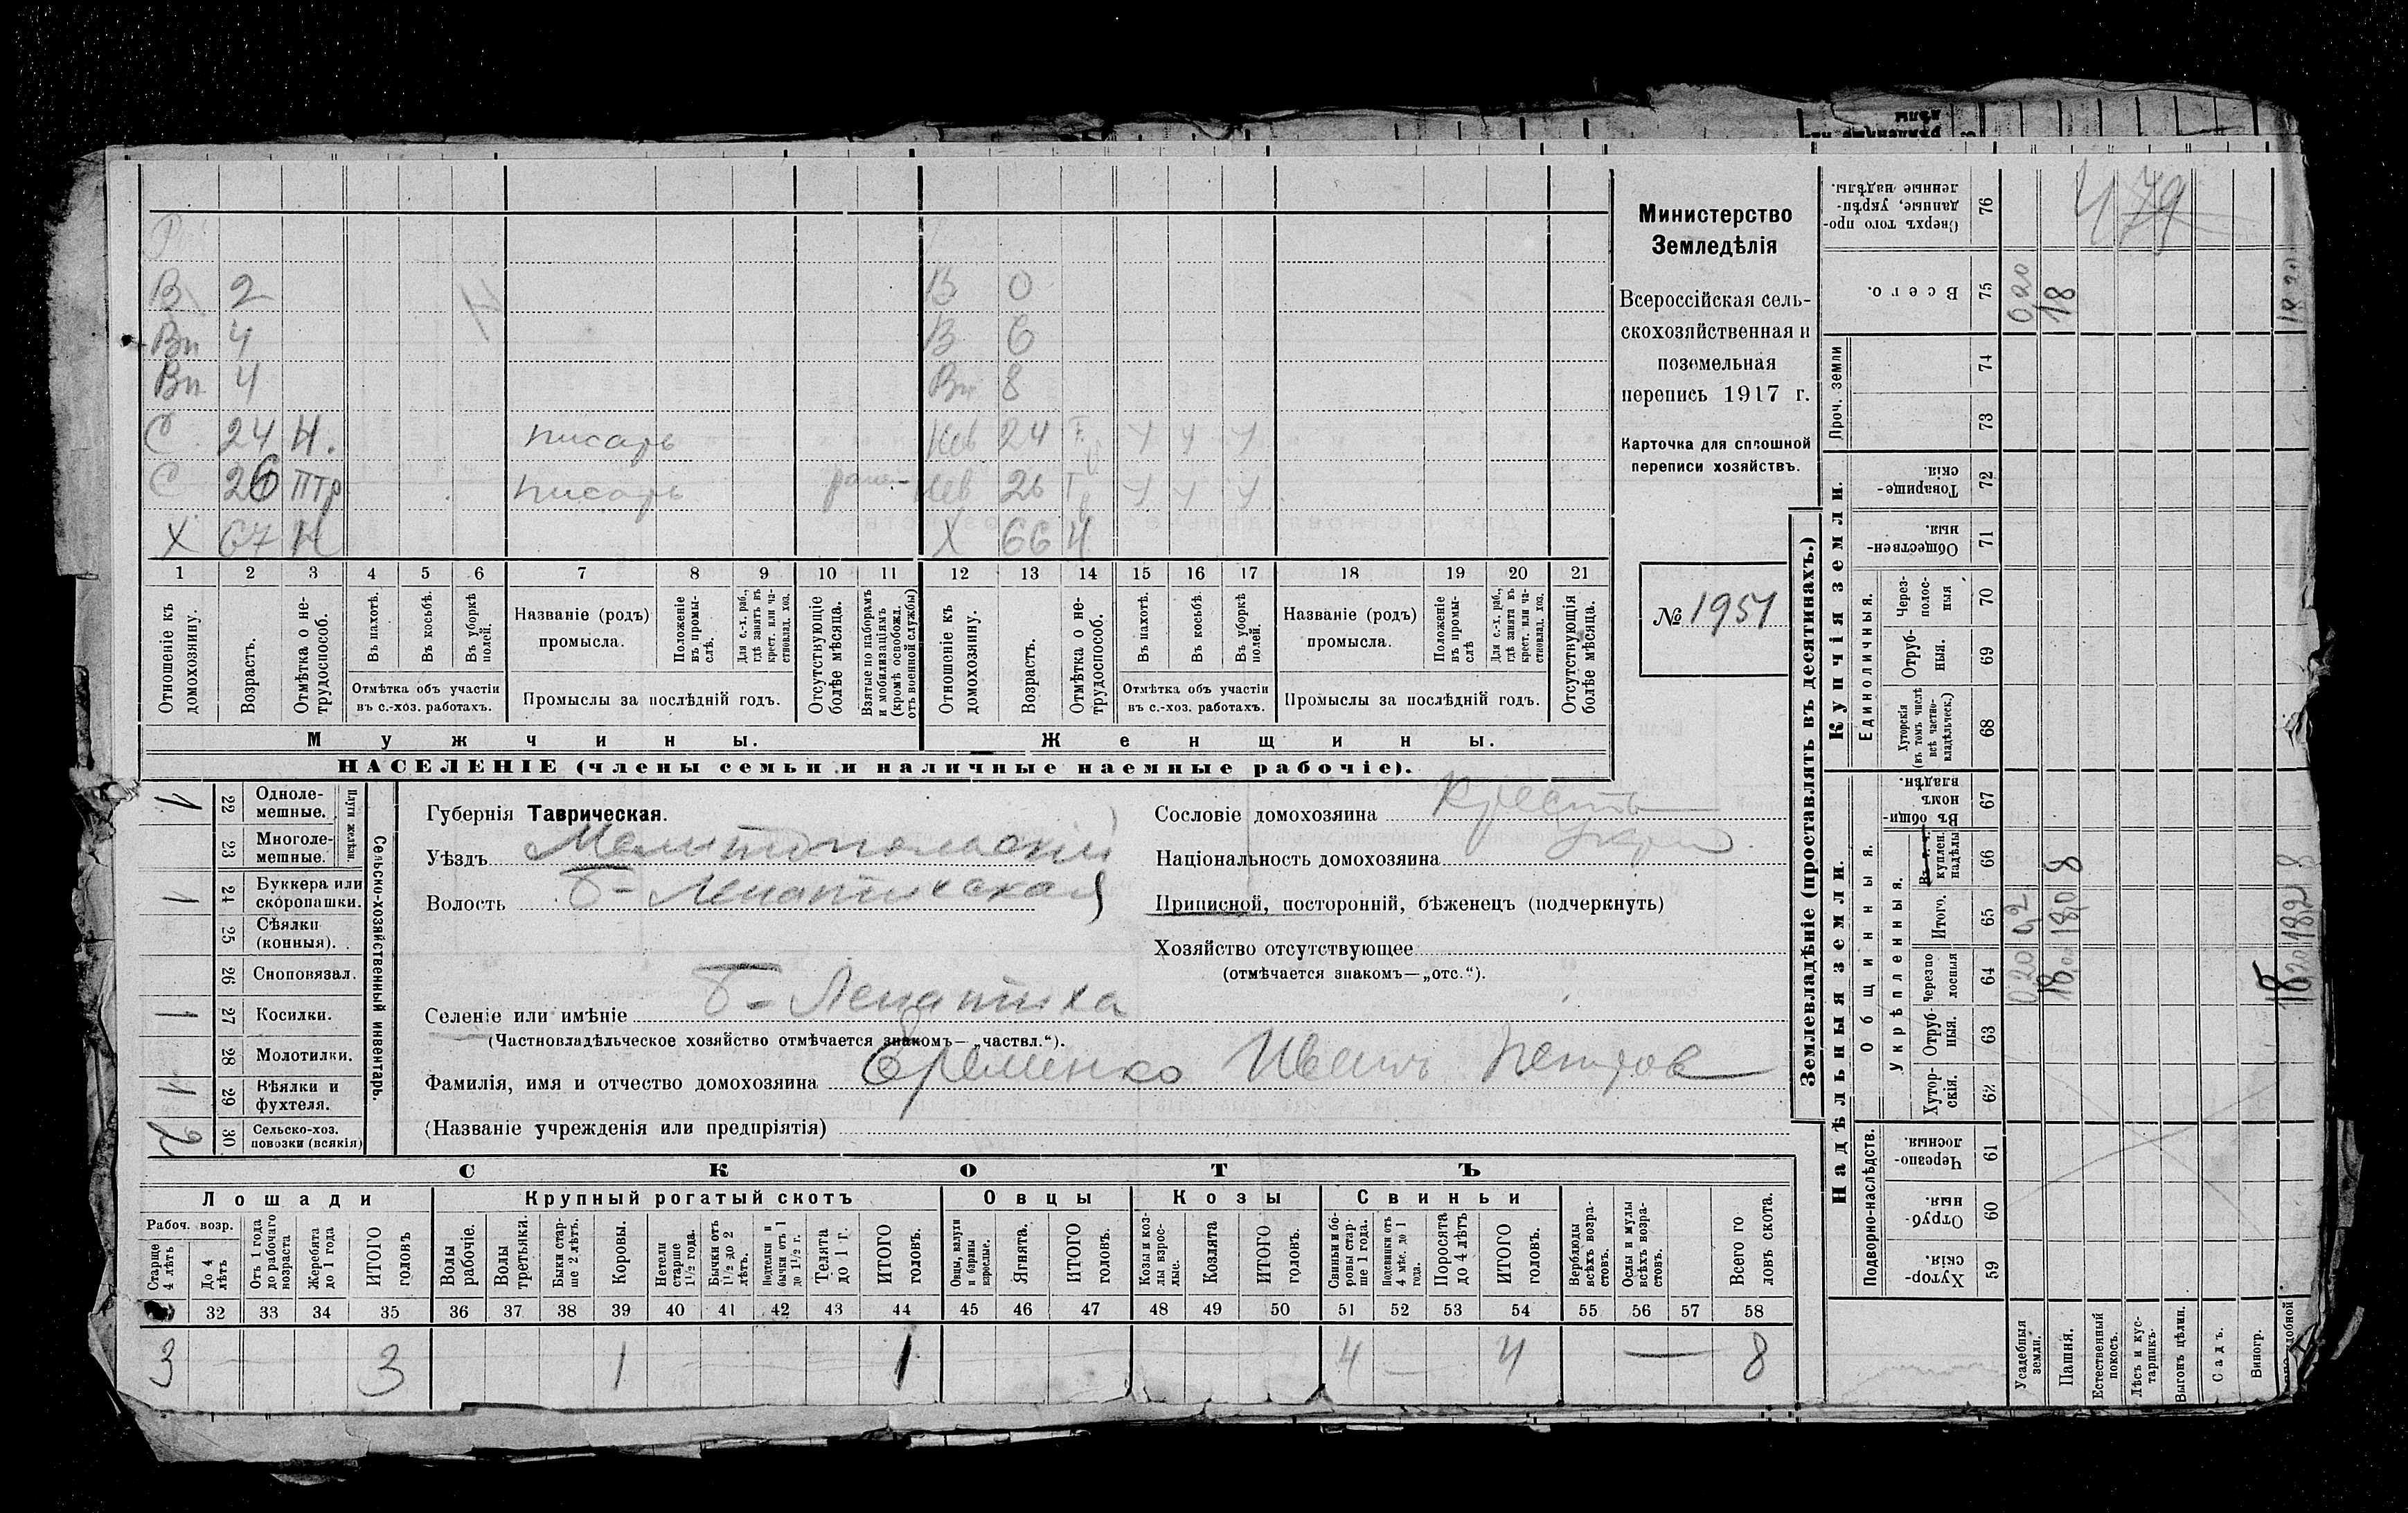 В 2 В 0
Вн 4 В 6
Вн 4 Вн 8
С 24 Н. писарь Нев 24 Г
С 26 Птр писарь Нев 26 Г
Х 67 Н Х 66 Н
1 2 3 4 5 6 7 8 9 10 11 12 13 14 15 16 17 18 19 20 21
Отношеніе къ домохозяину.
Возрастъ.
Отмѣтка о не-
трудоспособ.
Въ пахотѣ.
Въ косьбѣ.
Въ уборкѣ
полей.
Отмѣтка объ участіи
въ с.-хоз. работахъ.
Названіе (родъ)
промысла.
Положеніе
въ промы-
слѣ.
Для с.-х. раб.,
гдѣ занятъ въ
крест. или ча-
стновлад. хоз.
Промыслы за послѣдній годъ.
Отсутствующіе
болѣе мѣсяца.
Взятые по наборамъ
и мобилизаціямъ
(кромѣ освобожд.
отъ военной службы)
Отношеніе къ
домохозяину.
Возрастъ.
Отмѣтка о не-
трудоспособ.
Въ пахотѣ.
Въ косьбѣ.
Въ уборкѣ
полей.
Отмѣтка объ участіи
въ с.-хоз. работахъ.
Названіе (родъ)
промысла.
Положеніе
въ промы-
слѣ
Для с.-х. раб.,
гдѣ занята въ
крест. или ча-
стновлад. хоз.
Промыслы за послѣдній годъ.
Отсутствующія
болѣе мѣсяца.
Мужчины.
Женщины.
НАСЕЛЕНІЕ (члены семьи и наличные наемные рабочіе).
Министерство
Земледѣлія
Всероссійская сель-
скохозяйственная и
поземельная
перепись 1917 г.
Карточка для сплошной
переписи хозяйствъ.
№ 1951
Сельско-хозяйственный инвентарь.
Плуги желѣзн.
1 22 Одноле-
мешные.
23 Многоле-
мешные.
1 24 Буккера или
скоропашки.
25 Сѣялки
(конныя).
26 Сноповязал.
1 27 Косилки.
28 Молотилки.
1 29 Вѣялки и
фухтеля.
2 30 Сельско-хоз.
повозки (всякія)
Губернія Таврическая.
Уѣздъ Мелитопольскій
Волость Б-Лепатихская
Селеніе или имѣніе Б-Лепатиха
(Частновладѣльческое хозяйство отмѣчается знакомъ—„частвл.“).
Фамилія, имя и отчество домохозяина Еременко Иванъ Петров
(Названіе учрежденія или предпріятія)
Сословіе домохозяина Крестъ
Національность домохозяина Укр
Приписной, посторонній, бѣженецъ (подчеркнуть)
Хозяйство отсутствующее
(отмѣчается знакомъ—„отс.“).
СКОТЪ
Лошади
Крупный рогатый скотъ
Овцы
Козы
Свиньи
Рабоч. возр.
Старше
4 лѣтъ
До 4
лѣтъ
Отъ 1 года
до рабочаго
возраста
Жеребята
до 1 года
ИТОГО
головъ
Волы
рабочіе.
Волы
третьяки.
Быки стар-
ше 2 лѣтъ.
Коровы.
Нетели
старше
1½ года.
Бычки отъ
1½ до 2
лѣтъ.
Подтелки и
бычки отъ 1
до 1½ г.
Телята
до 1 г.
ИТОГО
головъ.
Овцы, валухи
и бараны
взрослые.
Ягнята.
ИТОГО
головъ.
Козы и коз-
лы взрос-
лые.
Козлята
ИТОГО
головъ.
Свиньи и бо-
ровы стар-
ше 1 года.
Подсвинки отъ
4 мѣс. до 1
года.
Поросята
до 4 лѣтъ
ИТОГО
головъ.
Верблюды
всѣхъ возра-
стовъ.
Ослы и мулы
всѣхъ возра-
стовъ.
Всего го
ловъ скота.
32 33 34 35 36 37 38 39 40 41 42 43 44 45 46 47 48 49 50 51 52 53 54 55 56 57 58
3 3 1 1 4 4 8
Землевладѣніе (проставлять въ десятинахъ.)
Купчія земли.
Надѣльныя земли.
Единоличныя.
Общинныя.
Укрѣпленныя.
Подворно-наслѣдств.
Проч. земли
Сверхъ того про-
данные, укрѣп-
ленные надѣлы.
76
479
Всего.
75
0,20
18
18 20
74
73
Товарище-
скія.
72
Обществен-
ныя.
71
Через-
полос-
ныя
70
Отруб-
ныя.
69
Хуторскія
(въ томъ числѣ
всѣ частно-
владѣльческ.)
68
Въ общин-
номъ
владѣн.
67
Въ т. ч.
куплен.
надѣлы
66
8
8
Итого.
65
0,2
18,0
18,2
Черезпо
лосныя
64
0 20
18
18 20
Отруб-
ныя.
63
Хутор-
скія.
62
Черезпо-
лосныя.
61
Отруб-
ныя.
60
Хутор-
скія.
59
Усадебныя
земли.
Пашня.
Естественный
покосъ.
Лѣсъ и кус-
тарникъ.
Выгонъ цѣлин.
Садъ.
Виногр.